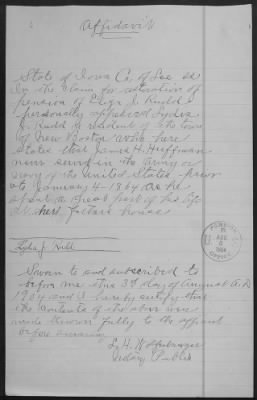 Affidavit
State of Iowa Co. of Lee ss
In the claim for
pension of J. Rudd
personally appeared Lydia
J. Rudd a resident of the town
of New Boston who here
states that James H. Huffman
never served in the army or
navy of the United States prior
to January 4 - 1864 as he
spent a great part of his life
at her Fathers house
Lydia J. Hill
Sworn to and subscribed to
before me this 3rd day of August A.D.
1904 and I hereby certify that
the contents of the above were
made known fully to the affiant
before swearing
Notary Public